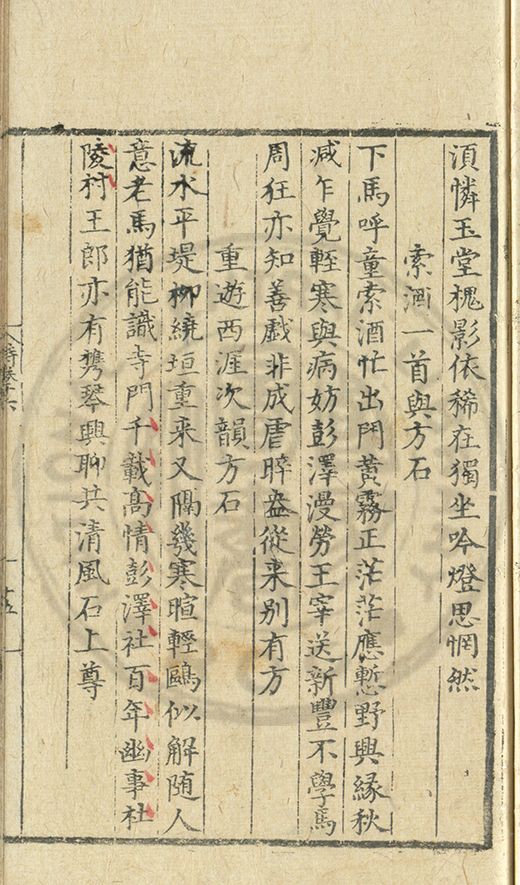 湏憐玉堂槐影依稀在獨坐吟燈思惘然
索酒一首與方石
下馬呼童索酒忙出門黄霧正茫茫應慙野興緣秋
减乍覺輕寒與病妨彭澤漫勞王宰送新豐不學馬
周狂亦知善戯非成虐睟盎從来别有方
重遊西涯次韻方石
流水平堤柳繞垣重来又隔幾寒暄輕鷗似解随人
意老馬猶能識寺門千載高情彭澤社百年幽事杜
陵村王郎亦有携琴興聊共清風石上尊
詩卷十六
十五